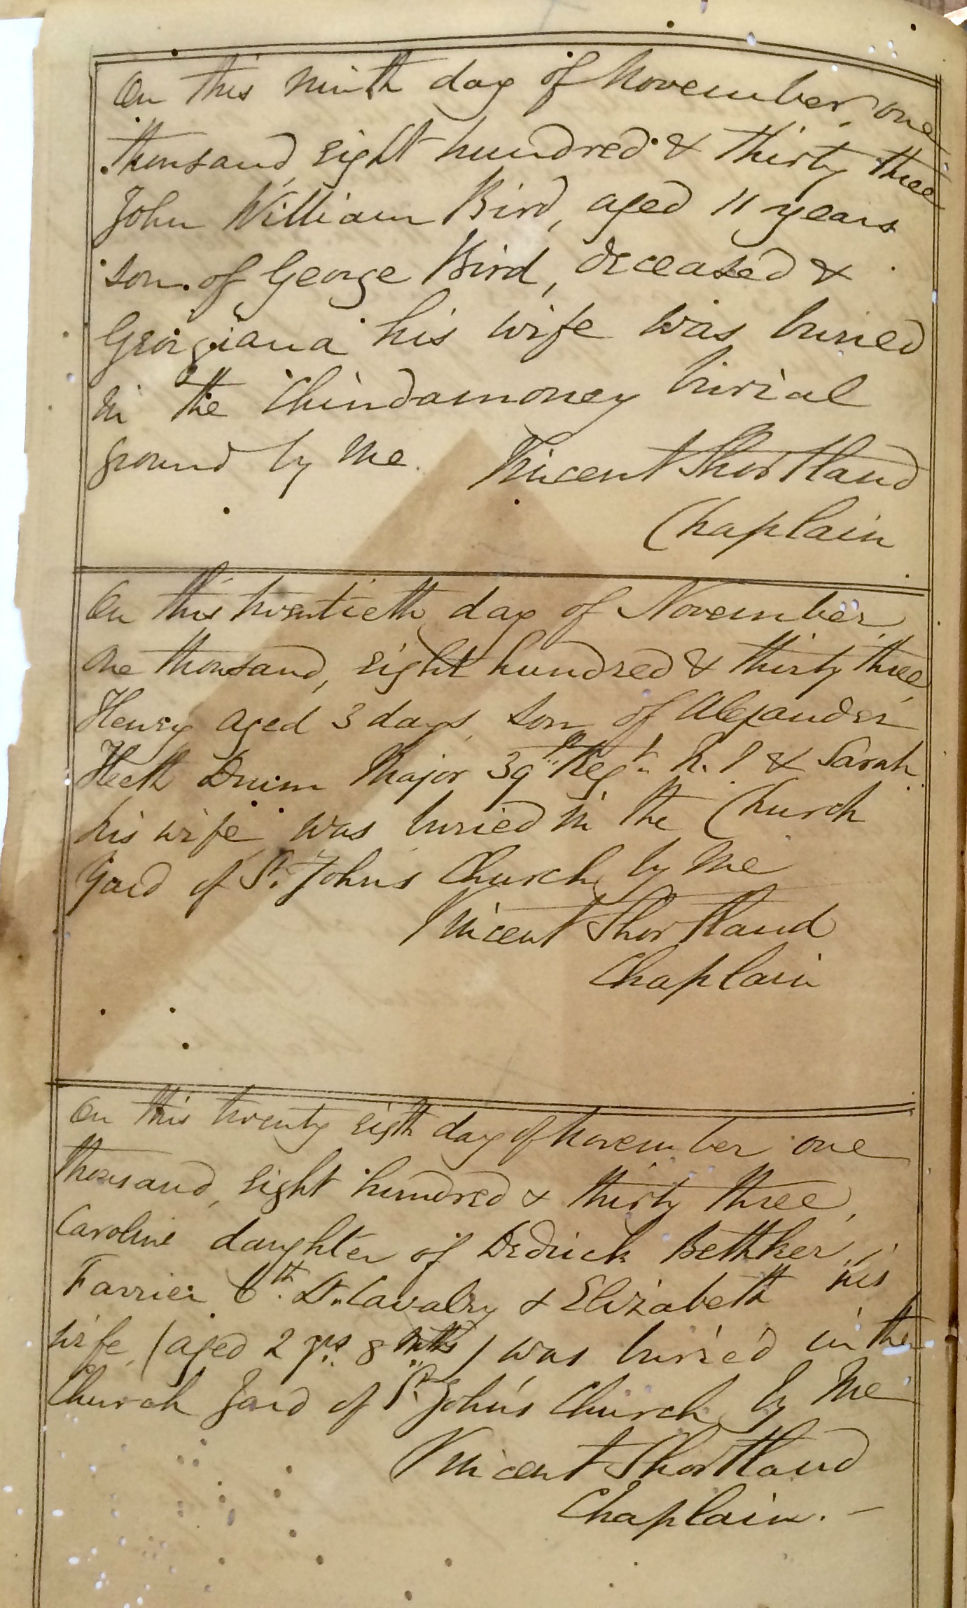 On this ninth day of November, one
thousand, eight hundred & thirty three
John William Bird, aged 11 years
son of George Bird, deceased &
Georgiana his wife was buried
in the Chindamoney burial
ground by me. Vincent Shortland
Chaplain
On this twentieth day of November,
one thousand, eight hundred & thirty three
Henry aged 3 days, son of Alexander
Major 39th Regt. N. I & Sarah
his wife, was buried in the Church
Yard of St. Johns Church, by me
Vincent Shortland
Chaplain
On this twenty day of November one
thousand, eight hundred & thirty three,
Caroline daughter of Dedrick Bethker,
Farrier 6th Lt. Cavalry & Elizabeth his
wife, (aged 2 yrs 8 mths) was buried in the
Church Yard of St. John's Church, by me
Vincent Shortland
Chaplain. –